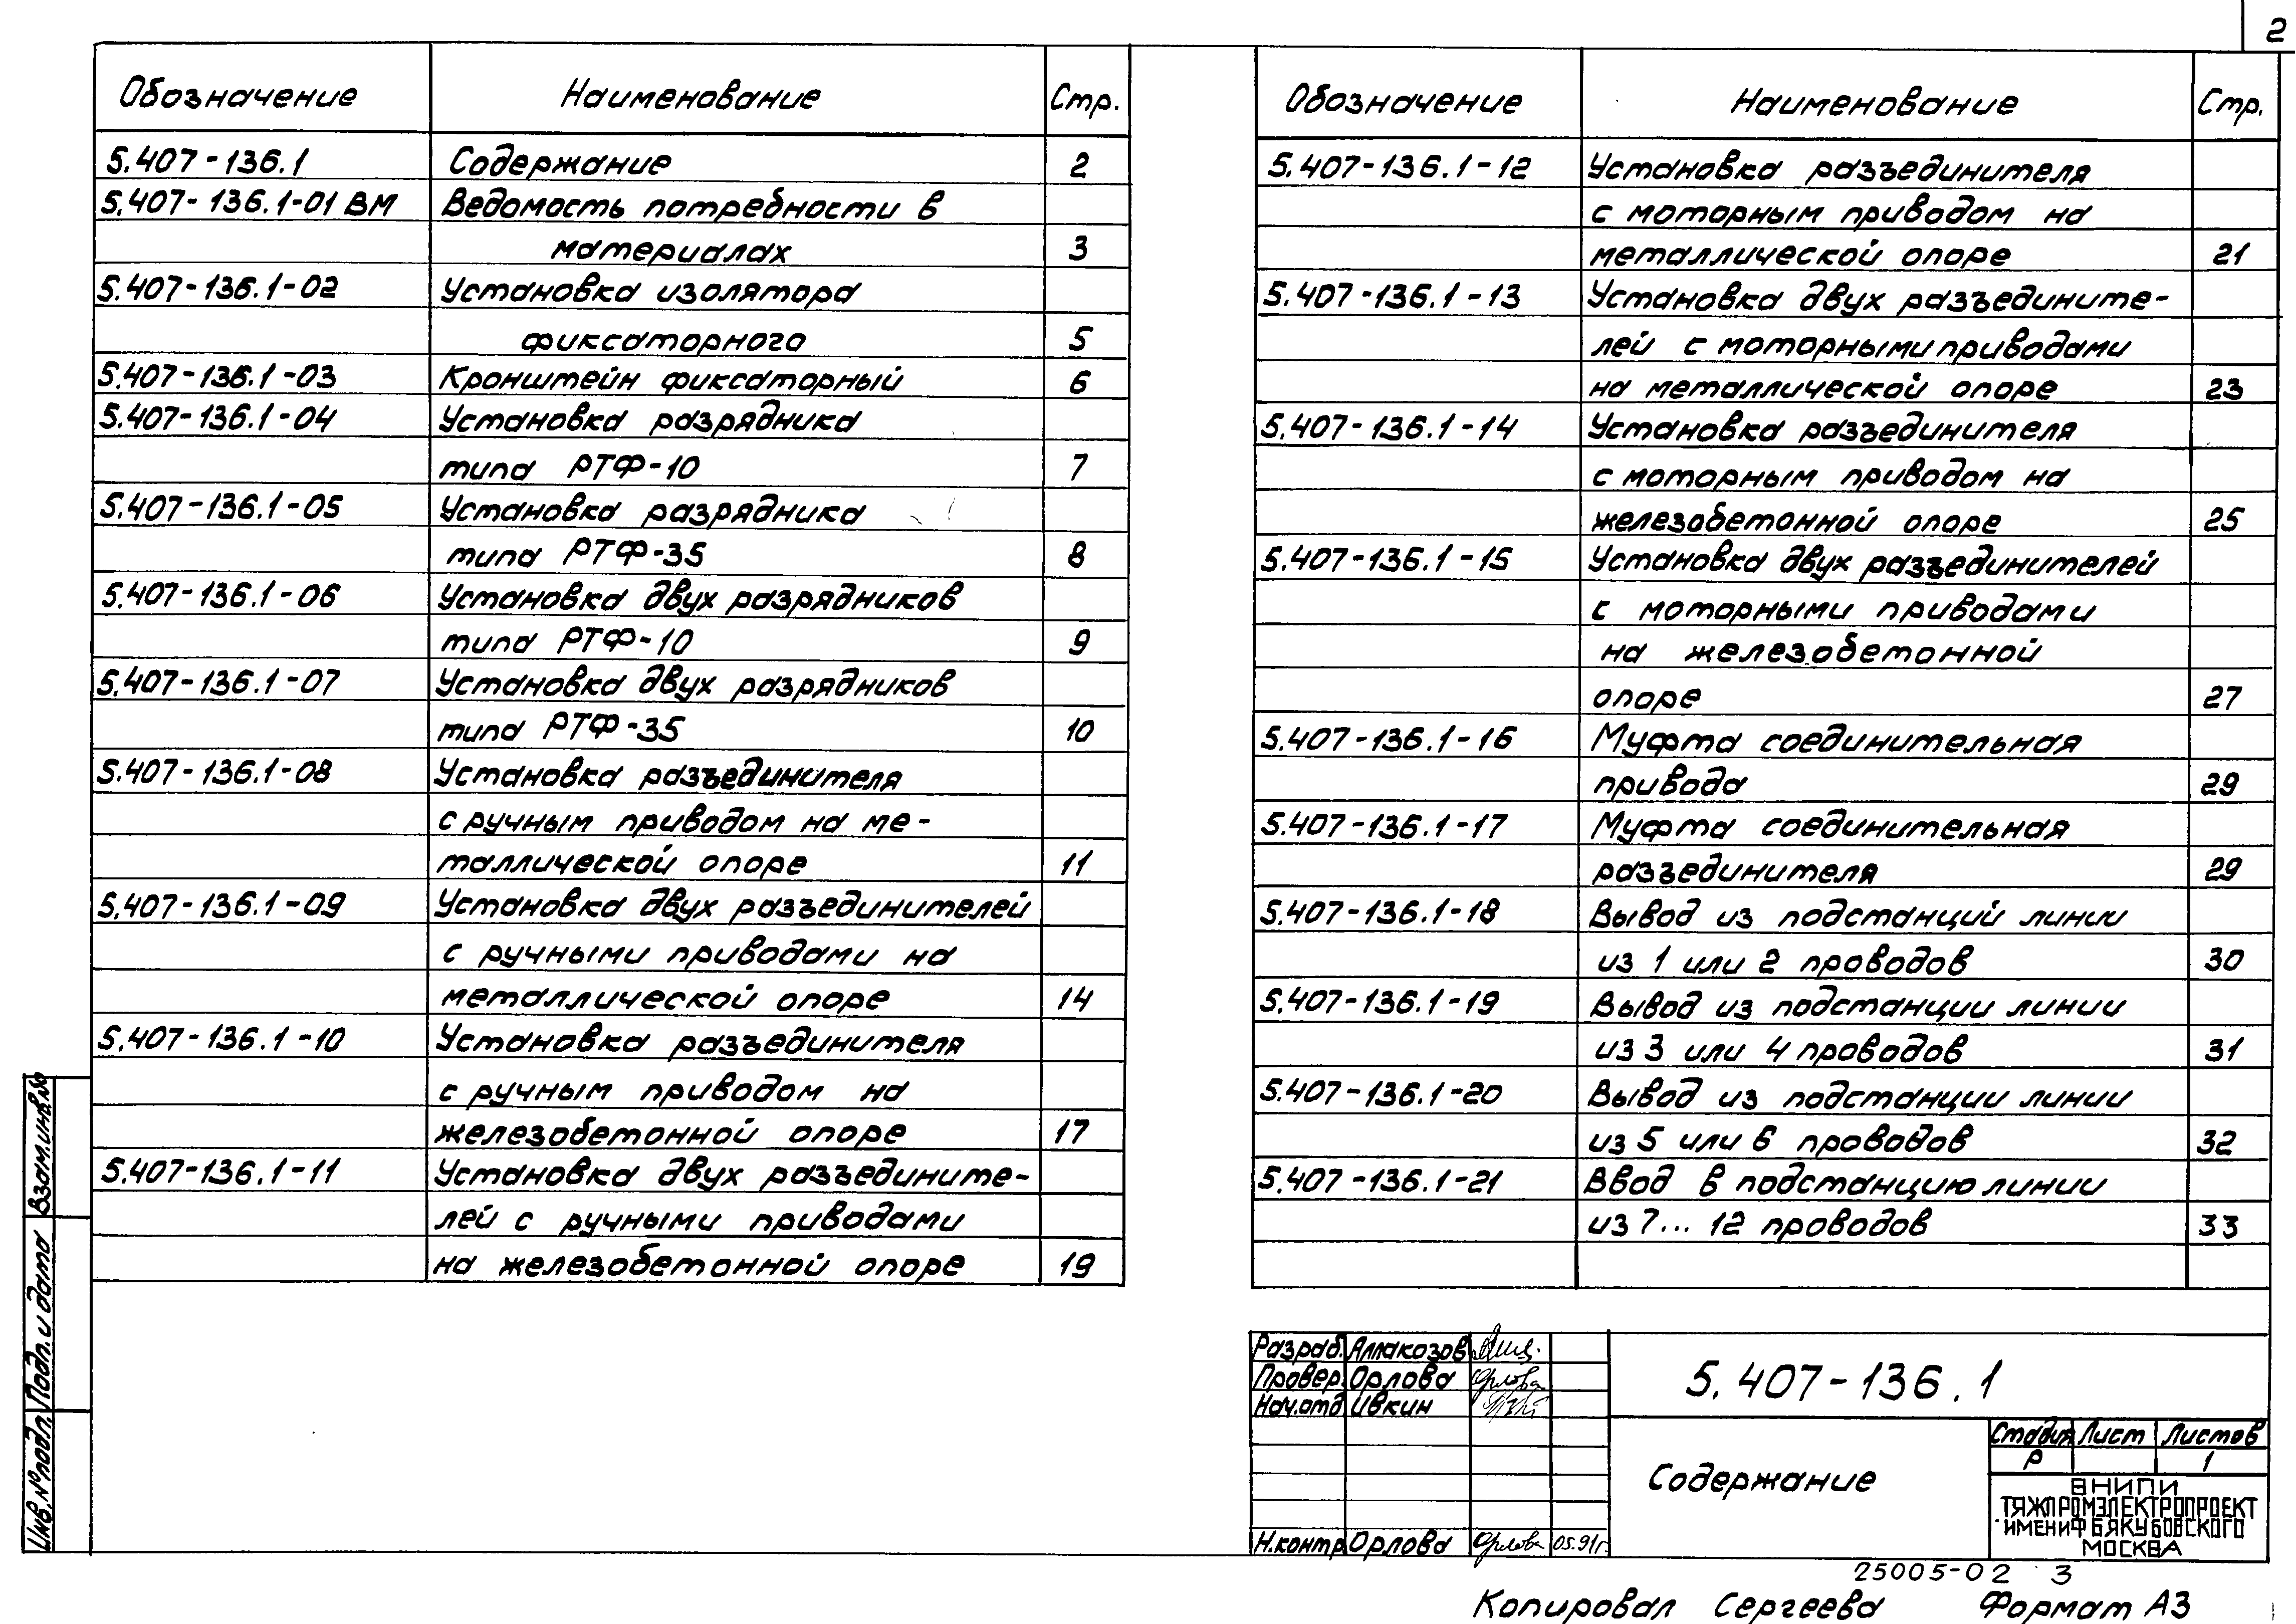 2
Обозначение Наименование Стр.
5.407-136.1 Содержание 2
5.407-136.1-01 ВМ Ведомость потребности в
материалах 3
5.407-136.1-02 Установка изолятора
фиксаторного 5
5.407-136.1-03 Кронштейн фиксаторный 6
5.407-136.1-04 Установка разрядника
типа РТФ-10 7
5.407-136.1-05 Установка разрядника
типа РТФ-35 8
5.407-136.1-06 Установка двух разрядников
типа РТФ-10 9
5.407-136.1-07 Установка двух разрядников
типа РТФ-35 10
5.407-136.1-08 Установка разъединителя
с ручным приводом на ме-
таллической опоре 11
5.407-136.1-09 Установка двух разъединителей
с ручными приводами на
металлической опоре 14
5.407-136.1-10 Установка разъединителя
с ручным приводом на
железобетонной опоре 17
5.407-136.1-11 Установка двух разъедините-
лей с ручными приводами
на железобетонной опоре 19
Обозначение Наименование Стр.
5.407-136.1-12 Установка разъединителя
с моторным приводом на
металлической опоре 21
5.407-136.1-13 Установка двух разъедините-
лей с моторными приводами
на металлической опоре 23
5.407-136.1-14 Установка разъединителя
с моторным приводом на
железобетонной опоре 25
5.407-136.1-15 Установка двух разъединителей
с моторными приводами
на железобетонной
опоре 27
5.407-136.1-16 Муфта соединительная
привода 29
5.407-136.1-17 Муфта соединительная
разъединителя 29
5.407-136.1-18 Вывод из подстанций линии
из 1 или 2 проводов 30
5.407-136.1-19 Вывод из подстанции линии
из 3 или 4 проводов 31
5.407-136.1-20 Вывод из подстанции линии
из 5 или 6 проводов 32
5.407-136.1-21 Ввод в подстанцию линии
из 7... 12 проводов 33
Взам.инв.№
Подп. и дата
Инв.№ подл.
Разраб. Аллакозов
Провер. Орлова Орлова
Нач.отд Ивкин
Н.контр Орлова Орлова 05.91г.
5.407-136.1
Содержание
Стадия Лист Листов
Р 1
ВНИПИ
ТЯЖПРОМЭЛЕКТРОПРОЕКТ
ИМЕНИ Ф.Б.ЯКУБОВСКОГО
МОСКВА
25005-02 3
Копировал Сергеева Формат А3